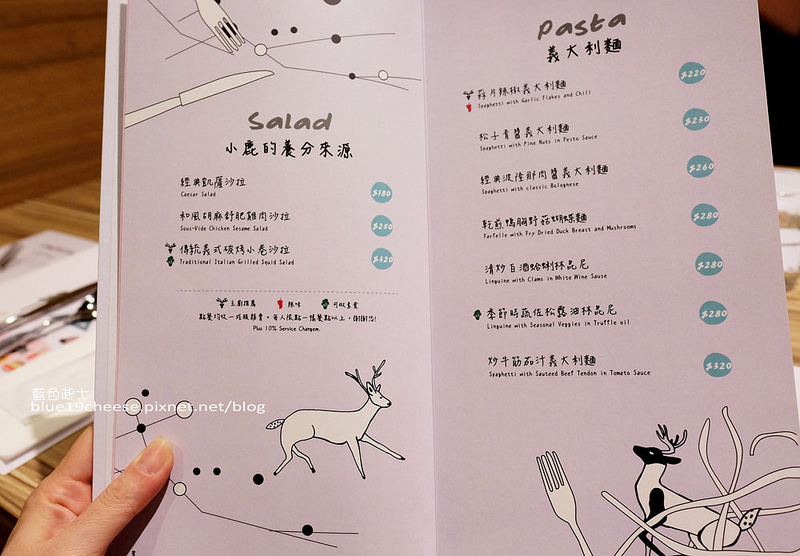 Salad
小鹿的養分來源
經典凱薩沙拉
Caesar Salad
$180
和風胡麻舒肥雞肉沙拉
Sous-Vide Chicken Sesame Salad
$250
傳統義式碳烤小卷沙拉
Traditional Italian Grilled Squid Salad
$320
主廚推薦 辣味 可做素食
點餐均收一成服務費，每人低點一樣餐點以上，謝謝您!
Plus 10% Service Chargem.
藍色起士
blue19cheese.pixnet.net/blog
Pasta
義大利麵
蒜片辣椒義大利麵
Spaghetti with Garlic Flakes and Chili
$220
松子青醬義大利麵
Spaghetti with Pine Nuts in Pesto Sauce
$230
經典波隆那肉醬義大利麵
Spaghetti with classic Bolognese
$260
乾煎鴨胸野菇蝴蝶麵
Farfelle with Fry Dried Duck Breast and Mushrooms
$280
清炒白酒蛤蜊林品尼
Linguine with Clams in White Wine Sauce
$280
季節時蔬佐松露油林品尼
Linguine with Seasonal Veggies in Truffle oil
$280
炒牛筋茄汁義大利麵
Spaghetti with Sauteed Beef Tendon in Tomato Sauce
$320